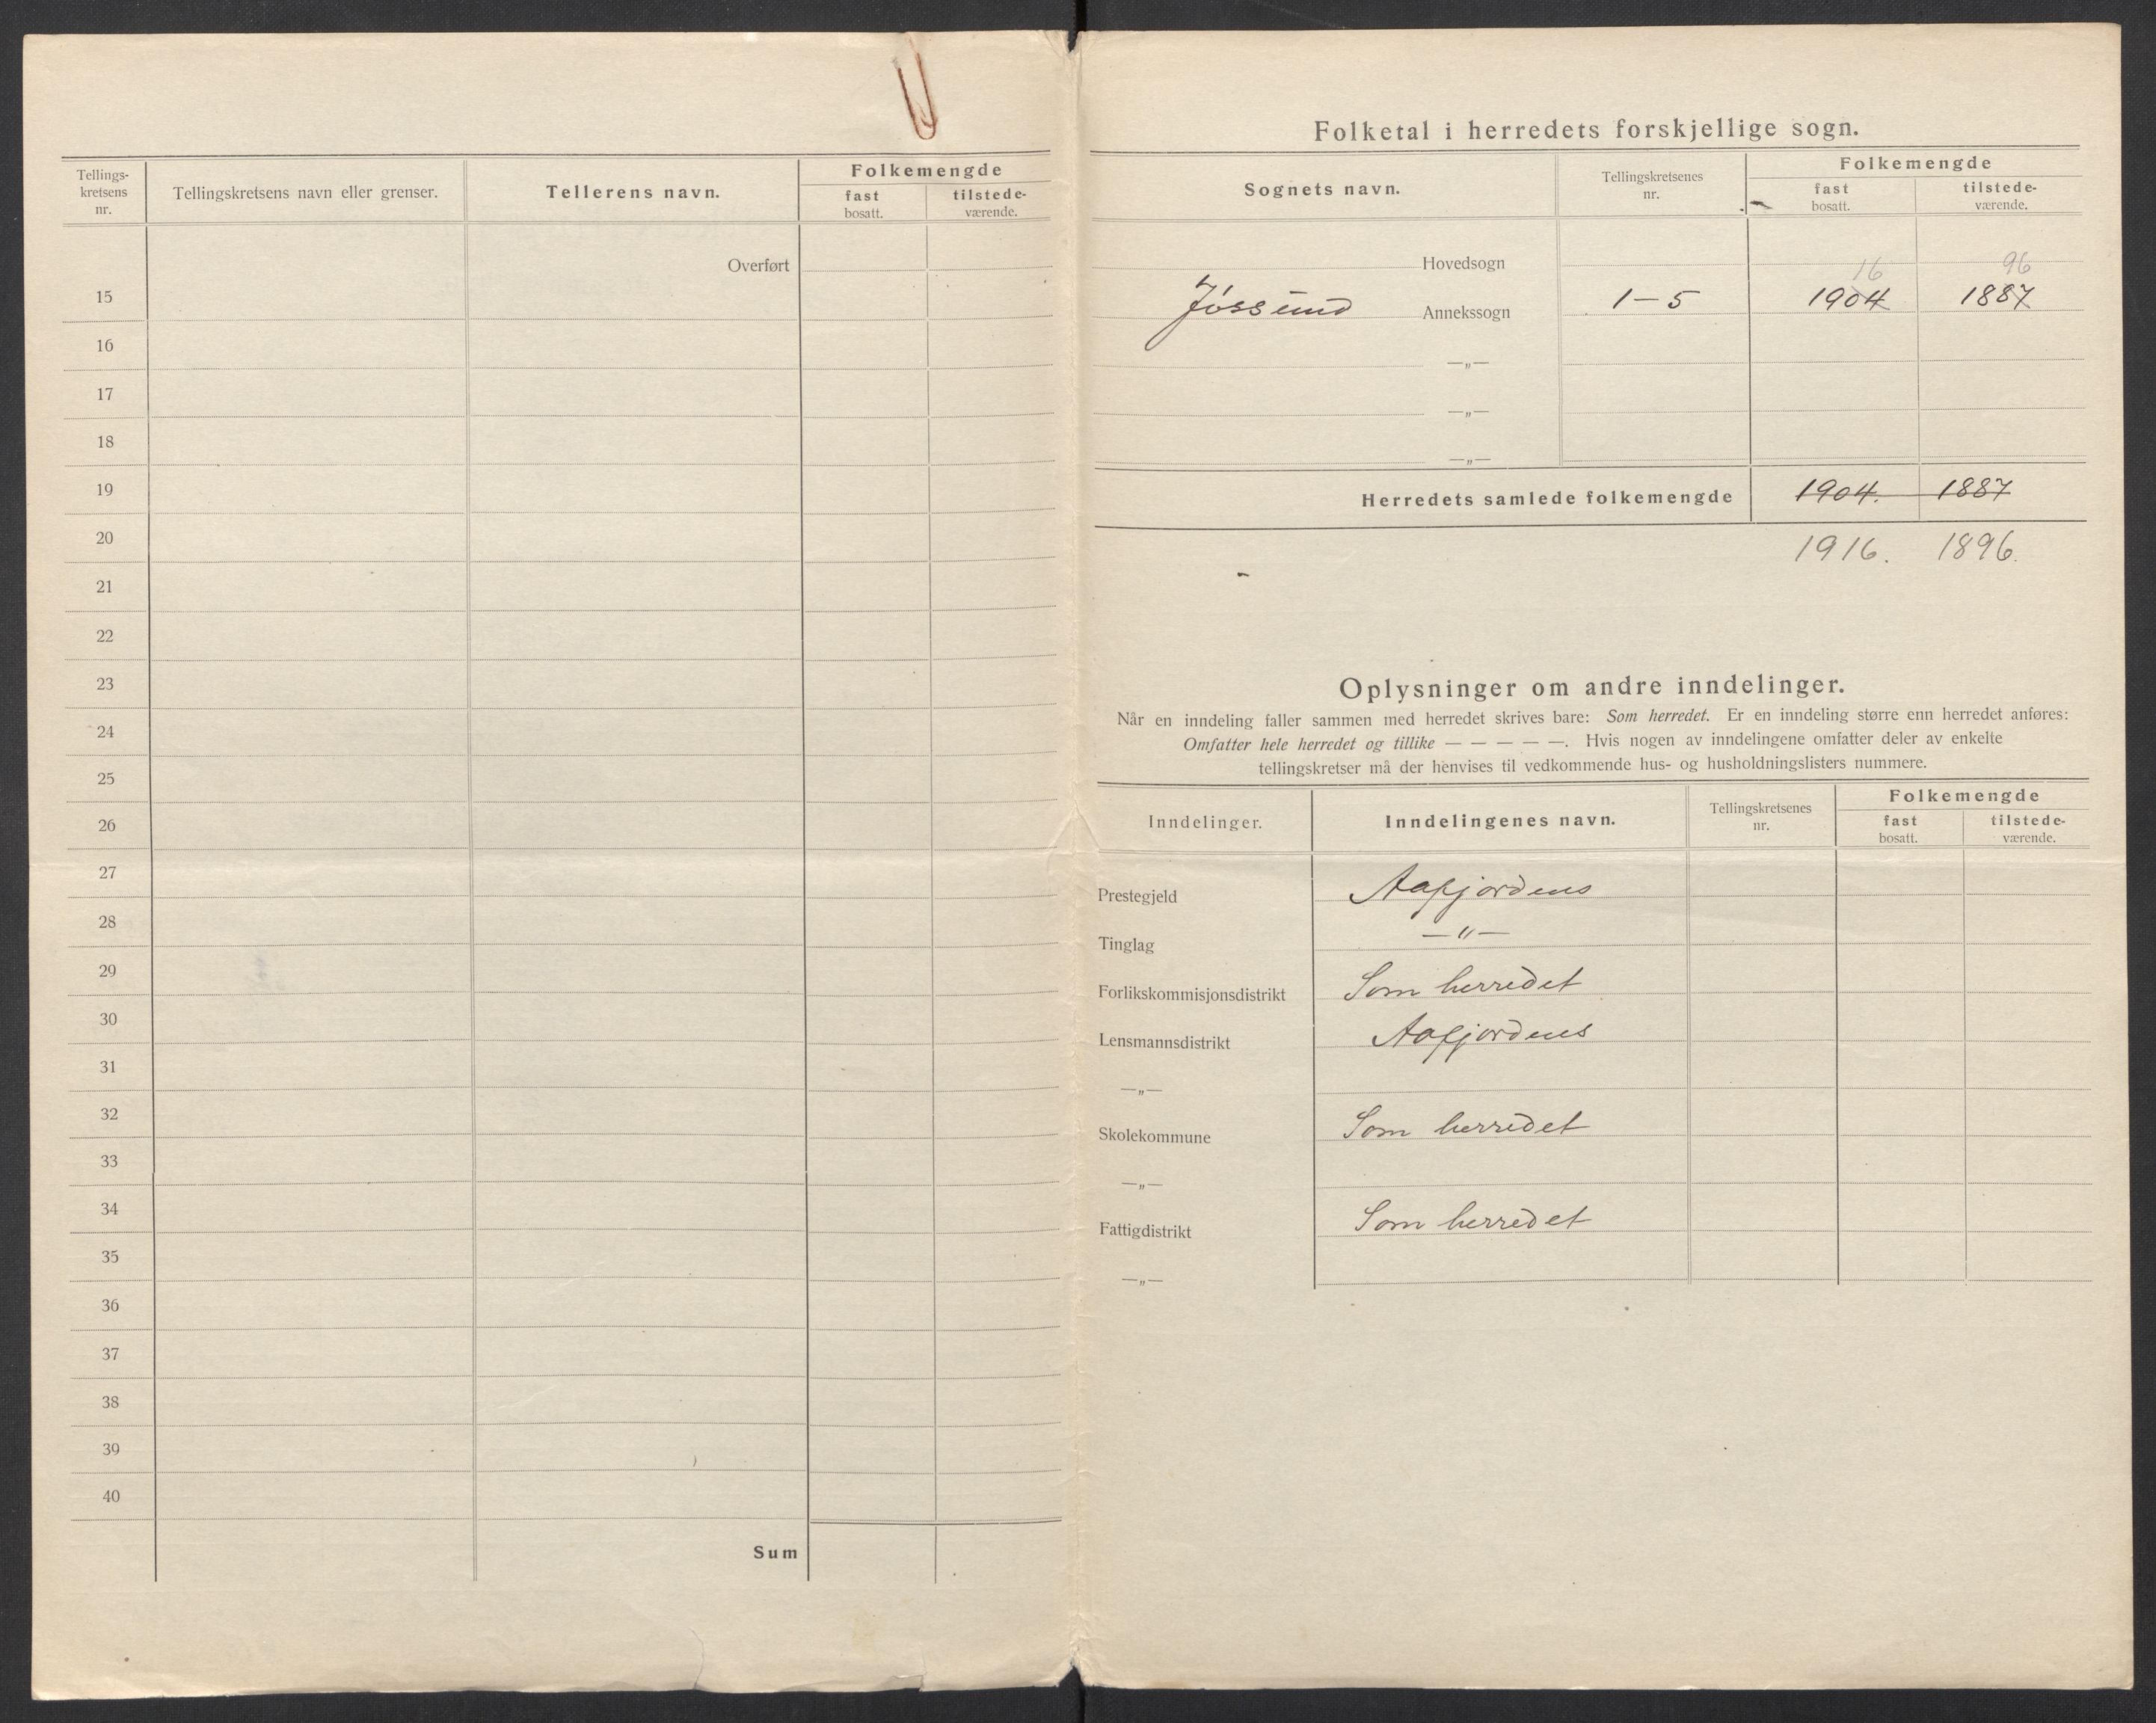 Tellings-
kretsens
nr.
Tellingskretsens navn eller grenser.
Tellerens navn.
Folkemengde
fast
bosatt.
tilstede-
værende.
Overført
15
16
17
18
19
20
21
22
23
24
25
26
27
28
29
30
31
32
33
34
35
36
37
38
39
40
Sum
Folketal i herredets forskjellige sogn.
Sognets navn.
Tellingskretsenes
nr.
Folkemengde
fast
bosatt.
tilstede-
værende.
Hovedsogn
16 96
Jøssund Annekssogn 1-5 1904 1887
—„—
—„—
—„—
Herredets samlede folkemengde 1904. 1887
1916. 1896.
Oplysninger om andre inndelinger.
Når en inndeling faller sammen med herredet skrives bare: Som herredet. Er en inndeling større enn herredet anføres:
Omfatter hele herredet og tillike — — — — —. Hvis nogen av inndelingene omfatter deler av enkelte
tellingskretser må der henvises til vedkommende hus- og husholdningslisters nummere.
Inndelinger.
Inndelingenes navn.
Tellingskretsenes
nr.
Folkemengde
fast
bosatt.
tilstede-
værende.
Prestegjeld Aafjordens
Tinglag —„—
Forlikskommisjonsdistrikt Som herredet
Lensmannsdistrikt Aafjordens
—„—
Skolekommune Som herredet
—„—
Fattigdistrikt Som herredet
—„—